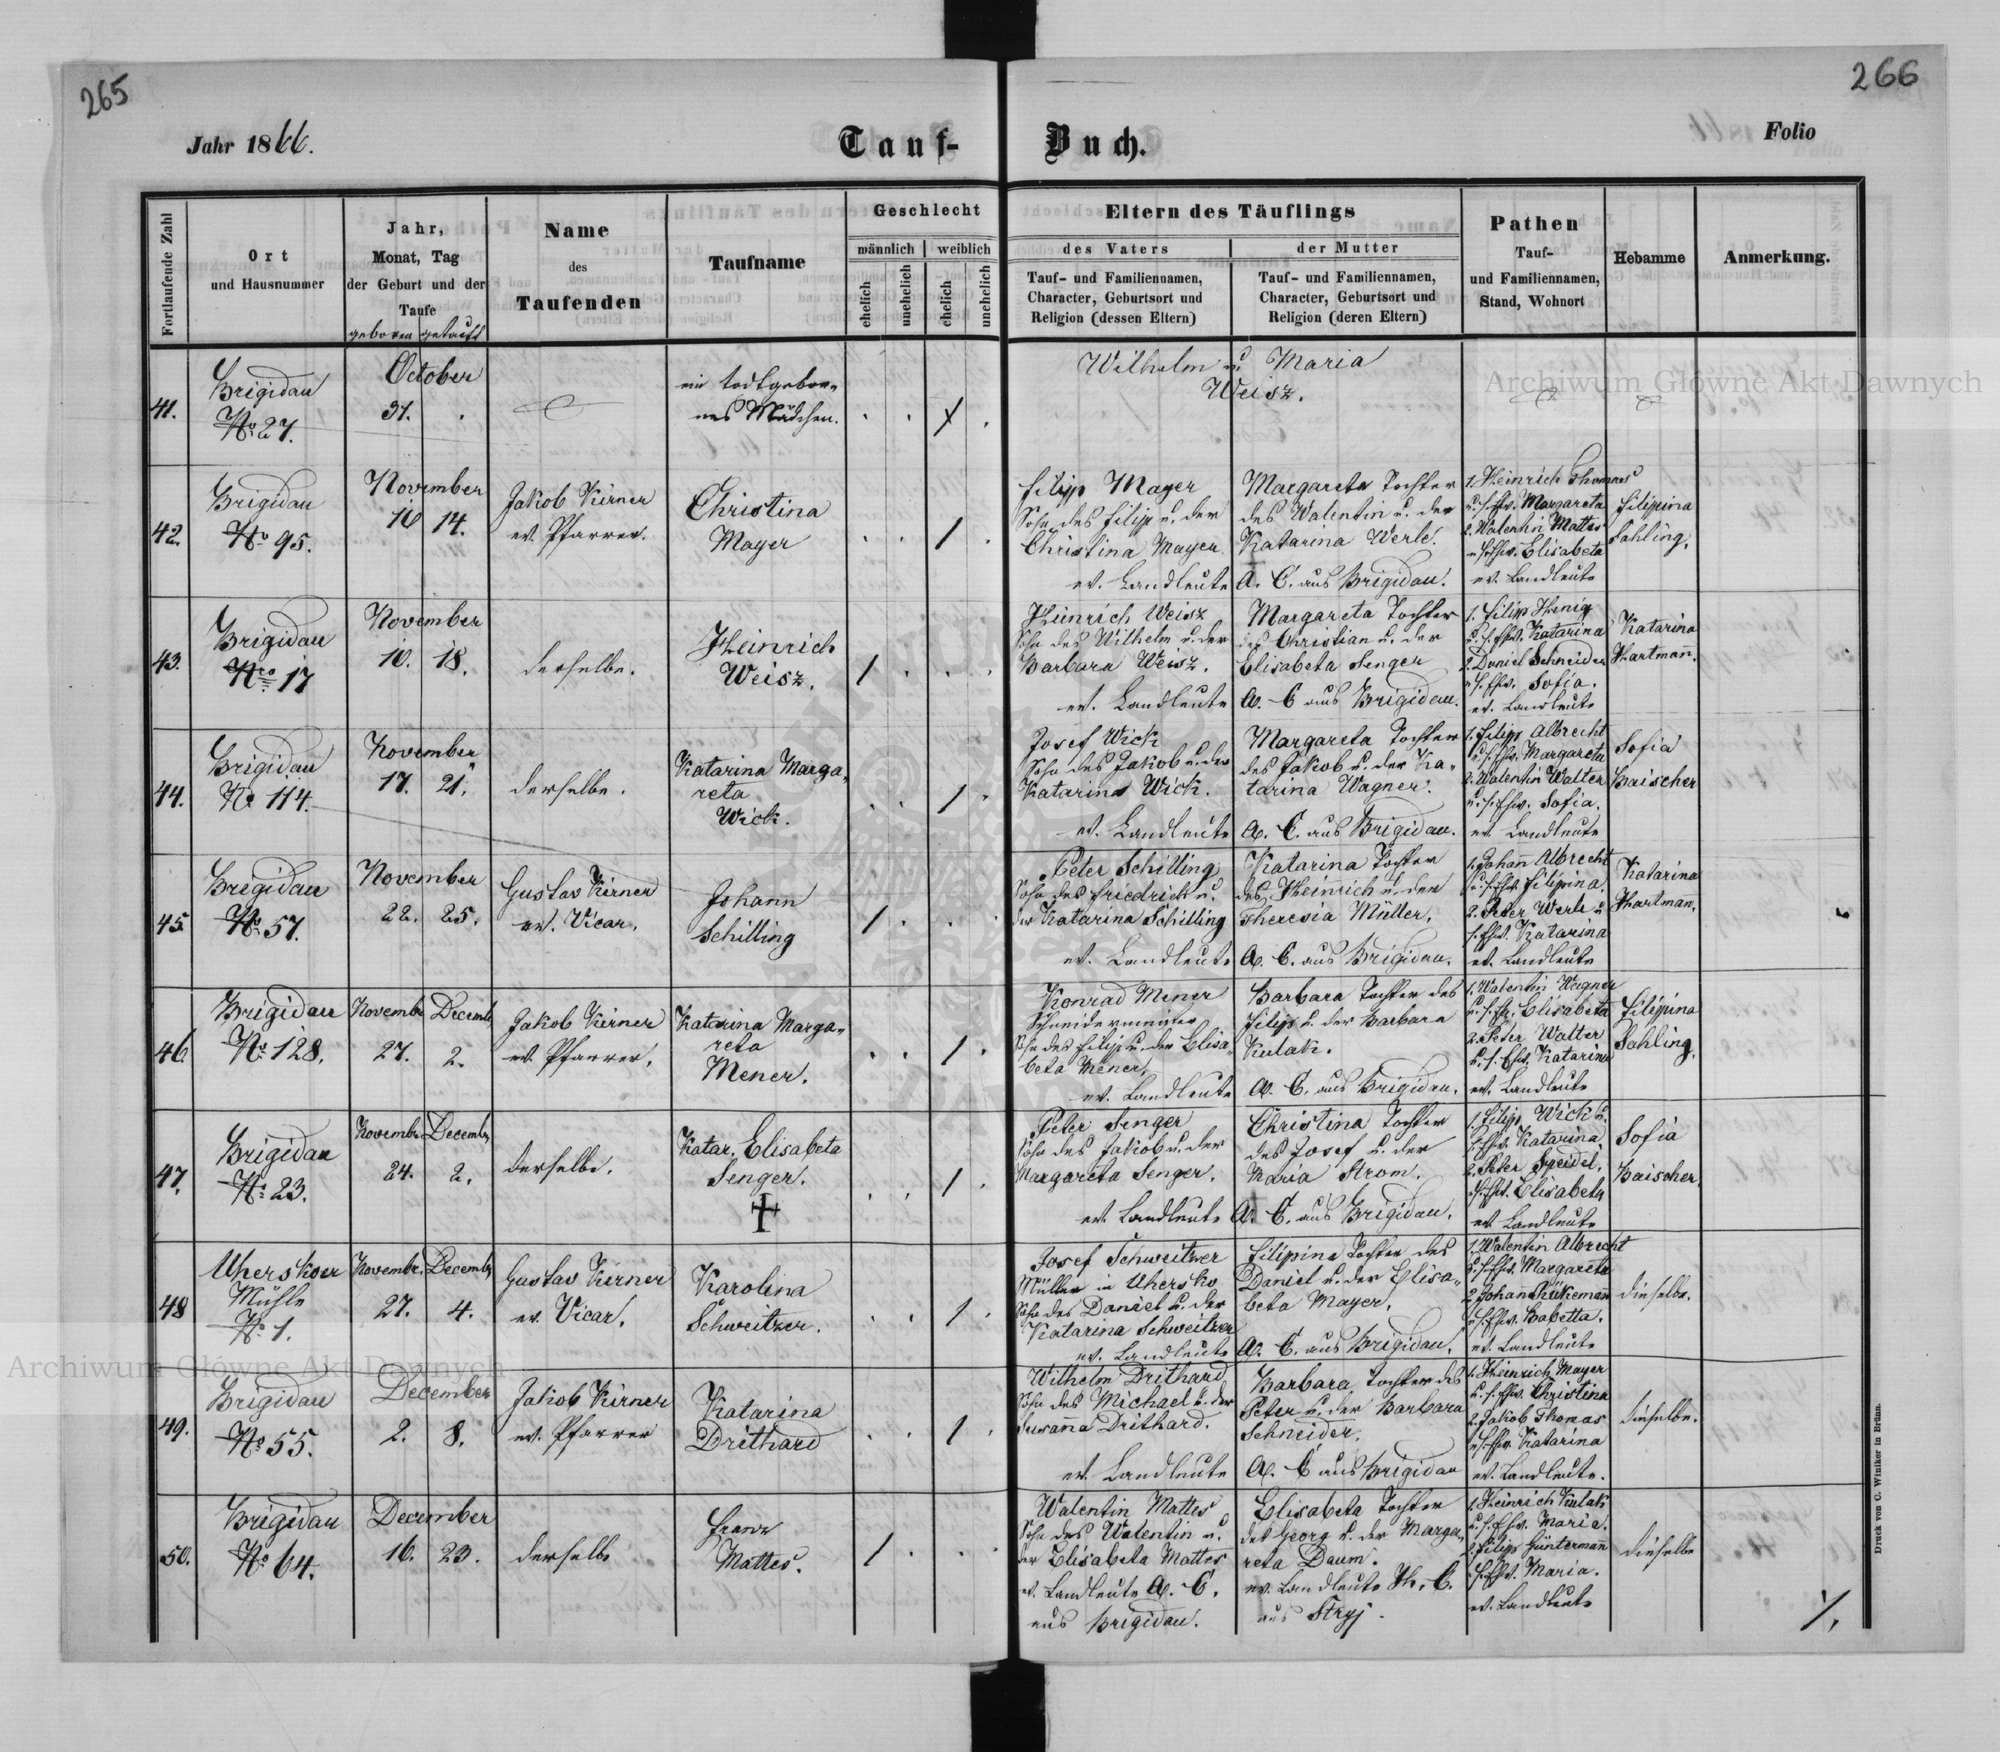 265
266
Jahr 1866.
Tauf-
Buch.
Folio
Fortlaufende Zahl
Ort
und Hausnummer
Jahr,
Monat, Tag
der Geburt und der
Taufe
geboren getauft
Name
des
Taufenden
Taufname
Geschlecht
männlich
weiblich
ehelich
unehelich
ehelich
unehelich
Eltern des Täuflings
des Vaters
Tauf- und Familiennamen,
Character, Geburtsort und
Religion (dessen Eltern)
der Mutter
Tauf- und Familiennamen,
Character, Geburtsort und
Religion (deren Eltern)
Pathen
Tauf-
und Familiennamen,
Stand, Wohnort
Hebamme
Anmerkung.
41.
Brigidau
No 27.
October
31.
ein todtgebor-
nes Mädchen.
Wilhelm u Maria
Weisz.
Archiwum Główne Akt Dawnych
42.
Brigidau
No 95.
November
10 14.
Jakob Kirner
ev. Pfarrer.
Christina
Mayer
Filipp Mayer
Sohn des Filipp u. der
Christina Mayer
ev. Landleute
Margareta Tochter
des Walentin u. der
Katarina Werle.
A. C. aus Brigidau.
1. Heinrich Thomas
u. s. Ehw. Margareta
2. Walentin Mattes
u s. Ehw. Elisabeta
ev. Landleute
Filipina
Sahling.
43.
Brigidau
Nro 17
November
10. 18.
derselbe.
Heinrich
Weisz.
Heinrich Weisz
Sohn des Wilhelm u. der
Barbara Weisz.
ev. Landleute
Margareta Tochter
des Christian u. der
Elisabeta Senger
A. C aus Brigidau.
1. Filip Henig
u. s. Ehw. Katarina
2. Daniel Schneider
u s. Ehw. Sofia.
ev. Landleute
Katarina
Hartmañ.
44.
Brigidau
No 114.
November
17. 21.
derselbe.
Katarina Marga-
reta
Wick.
Josef Wick
Sohn des Jakob u. der
Katarina Wick.
ev. Landleute
Margareta Tochter
des Jakob u. der Ka-
tarina Wagner.
A. C. aus Brigidau.
1. Filipp Albrecht
u s. Ehw. Margareta
2. Walentin Walter
u. s. Ehw. Sofia.
ev. Landleute
Sofia
Baischer
45.
Brigidau
No 57.
November
22. 25.
Gustav Kirner
ev. Vicar.
Johann
Schilling
Peter Schilling
Sohn des Friedrich u.
der Katarina Schilling
ev. Landleute
Katarina Tochter
des Heinrich u. der
Theresia Müller.
A. C. aus Brigidau.
1. Johañ Albrecht
u. s. Ehw. Filipina.
2. Peter Werle u
s. Ehw. Katarina
ev. Landleute
Katarina
Hartman.
46.
Brigidau
No 128.
Novembr. Decemb.
27. 2.
Jakob Kirner
ev. Pfarrer.
Katarina Marga-
reta
Mener.
Konrad Mener
Schneidermeister
Sohn des Filip u. der Elisa-
beta Mener.
ev. Landleute
Barbara Tochter des
Filip u. der Barbara
Kulak.
A. C. aus Brigidau.
1. Walentin Wagner
u. s. Ehw. Elisabeta
2. Peter Walter
u. s. Ehw. Katarina
ev. Landleute
Filipina
Sahling.
47.
Brigidau
No 23.
Novembr. Decemb.
24. 2.
derselbe.
Katar. Elisabeta
Senger.
Peter Senger
Sohn des Jakob u. der
Margareta Senger.
ev. Landleute
Christina Tochter
des Josef u. der
Maria Strom.
A. C. aus Brigidau.
1. Filipp Wick u.
s. Ehw. Katarina
2. Peter Speidel.
s. Ehw. Elisabeta
ev. Landleute
Sofia
Baischer.
48
Uherskoer
Mühle
No 1.
Novembr. Decemb.
27. 4.
Gustav Kirner
ev. Vicar.
Karolina
Schweitzer.
Josef Schweitzer
Müller in Uhersko
Sohn des Daniel u. der
Katarina Schweitzer
ev. Landleute
Filipina Tochter des
Daniel u. der Elisa-
beta Mayer.
A. C. aus Brigidau.
1. Walentin Albrecht
u. s. Ehw. Margareta
2. Johan Rükeman
u s. Ehw. Babetta.
ev. Landleute
dieselbe.
Archiwum Główne Akt Dawnych
49.
Brigidau
No 55.
December
2. 8.
Jakob Kirner
ev. Pfarrer
Katarina
Drithard
Wilhelm Drithard
Sohn des Michael u. der
Susaña Drithard.
ev. Landleute
Barbara Tochter des
Peter u. der Barbara
Schneider.
A. C aus Brigidau
1. Heinrich Mayer
u. s. Ehw. Christina
2. Jakob Thomas
u s. Ehw. Katarina
ev. Landleute.
dieselbe.
50.
Brigidau
No 64.
December
16. 23.
derselbe
Franz
Mattes.
Walentin Mattes
Sohn des Walentin u.
der Elisabeta Mattes
ev. Landleute A. C.
aus Brigidau.
Elisabeta Tochter
des Georg u. der Marga-
reta Daum.
ev. Landleute H. C.
aus Stryj.
1. Heinrich Kulak
u. s. Ehw. Maria.
2. Filip Günterman
s. Ehw. Maria.
ev. Landleute
dieselbe
Druck von C. Winiker in Brünn.